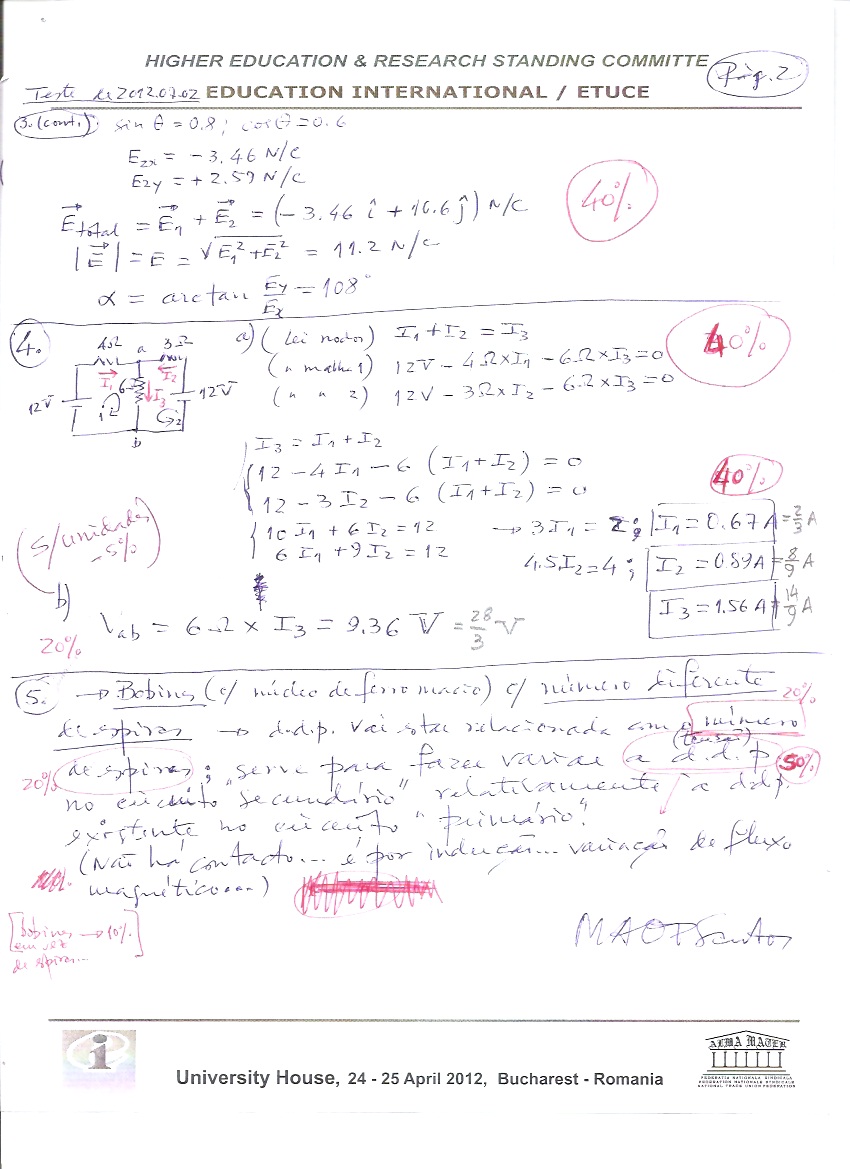 HIGHER EDUCATION & RESEARCH STANDING COMMITTE
Pág. 2
Teste de 2012.07.02 EDUCATION INTERNATIONAL / ETUCE
3. (cont.) sin θ = 0.8; cos θ = 0.6
E2x = -3.46 N/C
E2y = +2.59 N/C
E⃗total = E⃗1 + E⃗2 = (-3.46 î + 10.6 ĵ) N/C
40%
|E⃗| = E = √(E1² + E2²) = 11.2 N/C
α = arctan Ey/Ex = 108°
4.
4Ω a 3Ω
I1 I2
12V 6Ω I3 12V
1 2
b
a) (Lei nodos) I1 + I2 = I3
40%
(" malha 1) 12V - 4Ω×I1 - 6Ω×I3 = 0
(" " 2) 12V - 3Ω×I2 - 6Ω×I3 = 0
I3 = I1 + I2
12 - 4I1 - 6 (I1+I2) = 0
12 - 3I2 - 6 (I1+I2) = 0
40%
10 I1 + 6 I2 = 12 → 3I1 = 2; I1 = 0.67 A = 2/3 A
6 I1 + 9 I2 = 12 4.5 I2 = 4; I2 = 0.89 A = 8/9 A
I3 = 1.56 A = 14/9 A
(S/unidades
-5%)
b)
20%
Vab = 6Ω × I3 = 9.36 V = 28/3 V
5. → Bobines (c/ núcleo de ferro macio) c/ número diferente
20%
de espiras → d.d.p. vai estar relacionada com o número
(tensão)
20% de espiras; serve para fazer variar a d.d.p. 50%
no circuito "secundário" relativamente à d.d.p.
existente no circuito "primário".
(Não há contacto... é por indução... variação de fluxo
magnético...)
[bobines → 10%
em vez
de espiras...]
MAOFSantos
i
University House, 24 - 25 April 2012, Bucharest - Romania
ALMA MATER
FEDERATIA NATIONALA SINDICALA
FEDERATION NATIONALE SYNDICALE
NATIONAL TRADE UNION FEDERATION